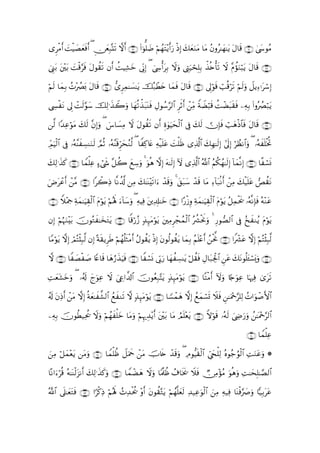 مُوسَىٰ ۝ قَالَ يَٰهَٰرُونُ مَا مَنَعَكَ إِذْ رَأَيْتَهُمْ ضَلُّوٓا۟ ۝ أَلَّا تَتَّبِعَنِ ۖ أَفَعَصَيْتَ أَمْرِى
۝ قَالَ يَبْنَؤُمَّ لَا تَأْخُذْ بِلِحْيَتِى وَلَا بِرَأْسِىٓ ۖ إِنِّى خَشِيتُ أَن تَقُولَ فَرَّقْتَ بَيْنَ بَنِىٓ
إِسْرَٰٓءِيلَ وَلَمْ تَرْقُبْ قَوْلِى ۝ قَالَ فَمَا خَطْبُكَ يَٰسَٰمِرِىُّ ۝ قَالَ بَصُرْتُ بِمَا لَمْ
يَبْصُرُوا۟ بِهِۦ فَقَبَضْتُ قَبْضَةً مِّنْ أَثَرِ ٱلرَّسُولِ فَنَبَذْتُهَا وَكَذَٰلِكَ سَوَّلَتْ لِى نَفْسِى
۝ قَالَ فَٱذْهَبْ فَإِنَّ لَكَ فِى ٱلْحَيَوٰةِ أَن تَقُولَ لَا مِسَاسَ ۖ وَإِنَّ لَكَ مَوْعِدًا لَّن
تُخْلَفَهُۥ ۖ وَٱنظُرْ إِلَىٰٓ إِلَٰهِكَ ٱلَّذِى ظَلْتَ عَلَيْهِ عَاكِفًا ۖ لَّنُحَرِّقَنَّهُۥ ثُمَّ لَنَنسِفَنَّهُۥ فِى ٱلْيَمِّ
نَسْفًا ۝ إِنَّمَآ إِلَٰهُكُمُ ٱللَّهُ ٱلَّذِى لَآ إِلَٰهَ إِلَّا هُوَ ۚ وَسِعَ كُلَّ شَىْءٍ عِلْمًا ۝ كَذَٰلِكَ
نَقُصُّ عَلَيْكَ مِنْ أَنۢبَآءِ مَا قَدْ سَبَقَ ۚ وَقَدْ ءَاتَيْنَٰكَ مِن لَّدُنَّا ذِكْرًا ۝ مَّنْ أَعْرَضَ
عَنْهُ فَإِنَّهُۥ يَحْمِلُ يَوْمَ ٱلْقِيَٰمَةِ وِزْرًا ۝ خَٰلِدِينَ فِيهِ ۖ وَسَآءَ لَهُمْ يَوْمَ ٱلْقِيَٰمَةِ حِمْلًا ۝
يَوْمَ يُنفَخُ فِى ٱلصُّورِ ۚ وَنَحْشُرُ ٱلْمُجْرِمِينَ يَوْمَئِذٍ زُرْقًا ۝ يَتَخَٰفَتُونَ بَيْنَهُمْ إِن
لَّبِثْتُمْ إِلَّا عَشْرًا ۝ نَّحْنُ أَعْلَمُ بِمَا يَقُولُونَ إِذْ يَقُولُ أَمْثَلُهُمْ طَرِيقَةً إِن لَّبِثْتُمْ إِلَّا يَوْمًا
۝ وَيَسْـَٔلُونَكَ عَنِ ٱلْجِبَالِ فَقُلْ يَنسِفُهَا رَبِّى نَسْفًا ۝ فَيَذَرُهَا قَاعًا صَفْصَفًا ۝ لَّا
تَرَىٰ فِيهَا عِوَجًا وَلَآ أَمْتًا ۝ يَوْمَئِذٍ يَتَّبِعُونَ ٱلدَّاعِىَ لَا عِوَجَ لَهُۥ ۖ وَخَشَعَتِ
ٱلْأَصْوَاتُ لِلرَّحْمَٰنِ فَلَا تَسْمَعُ إِلَّا هَمْسًا ۝ يَوْمَئِذٍ لَّا تَنفَعُ ٱلشَّفَٰعَةُ إِلَّا مَنْ أَذِنَ لَهُ
ٱلرَّحْمَٰنُ وَرَضِىَ لَهُۥ قَوْلًا ۝ يَعْلَمُ مَا بَيْنَ أَيْدِيهِمْ وَمَا خَلْفَهُمْ وَلَا يُحِيطُونَ بِهِۦ
عِلْمًا ۝
۞ وَعَنَتِ ٱلْوُجُوهُ لِلْحَىِّ ٱلْقَيُّومِ ۖ وَقَدْ خَابَ مَنْ حَمَلَ ظُلْمًا ۝ وَمَن يَعْمَلْ مِنَ
ٱلصَّٰلِحَٰتِ وَهُوَ مُؤْمِنٌ فَلَا يَخَافُ ظُلْمًا وَلَا هَضْمًا ۝ وَكَذَٰلِكَ أَنزَلْنَٰهُ قُرْءَانًا
عَرَبِيًّا وَصَرَّفْنَا فِيهِ مِنَ ٱلْوَعِيدِ لَعَلَّهُمْ يَتَّقُونَ أَوْ يُحْدِثُ لَهُمْ ذِكْرًا ۝ فَتَعَٰلَى ٱللَّهُ